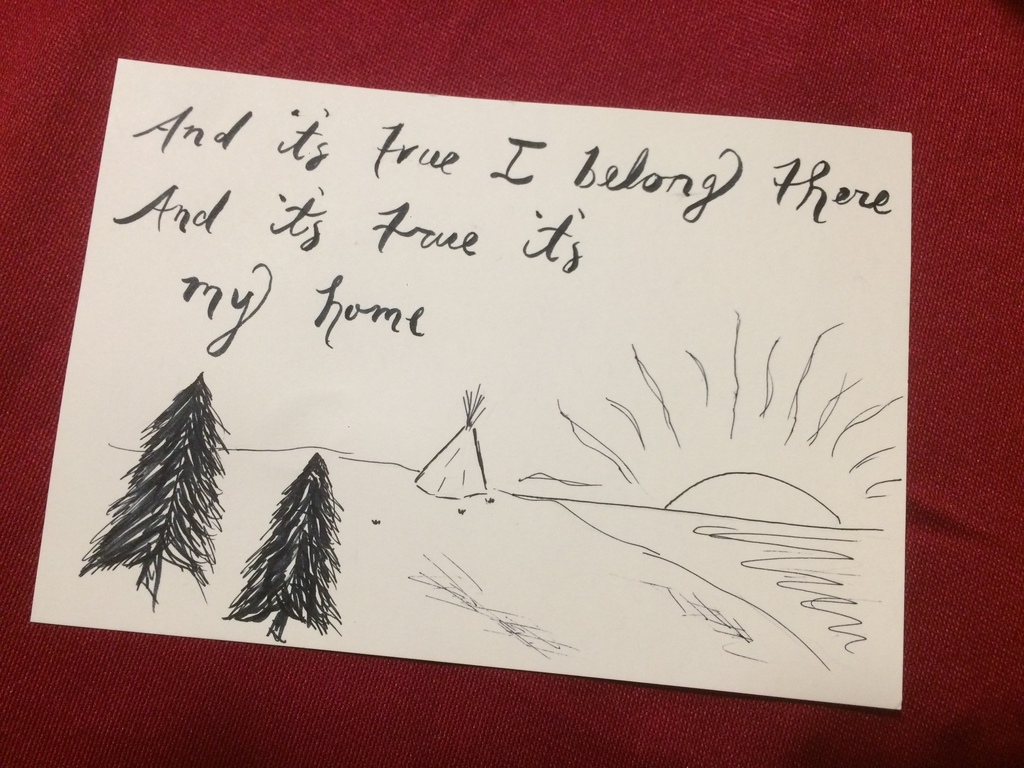 And it's true I belong there
And it's true it's
my home